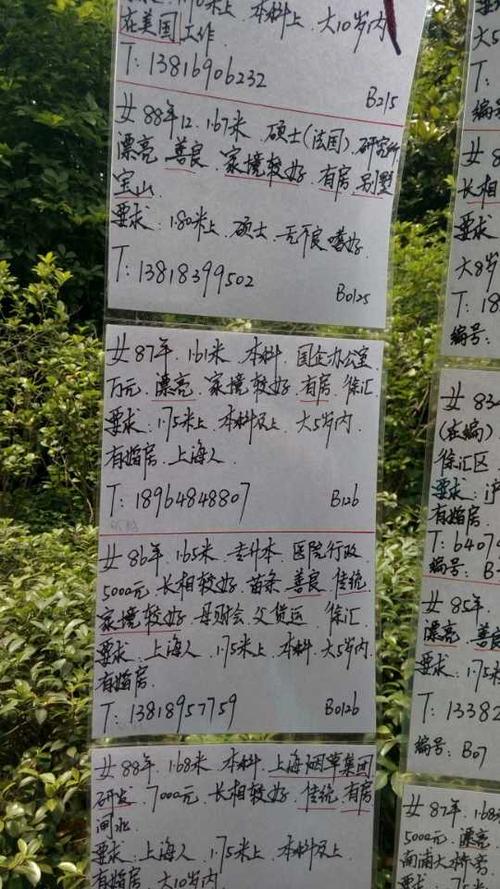 在美国工作
T：13816906232
B215
女88年12.1.67米.硕士(法国).研究所
漂亮.善良.家境较好.有房.别墅
宝山
要求：1.80米上.硕士.无不良嗜好.
T：13818399502
B0125
女87年.1.61米.本科.国企办公室
万元.漂亮.家境较好.有房.徐汇
要求：1.75米上.本科及上.大5岁内
有婚房.上海人.
T：18964848807
B126
女86年.1.65米.专升本.医院行政
5000元.长相较好.苗条.善良.传统.
家境较好.母财会.父货运.徐汇.
要求：上海人.1.75米上.本科.大5岁内
有婚房.
T：13818957759
B0126
女88年.1.68米.本科.上海烟草集团
研发.7000元.长相较好.传统.有房
闸北
要求：上海人.1.75米上.本科及上.
有婚房.大10岁内
大5
编号
女8
长相
要求
大8岁
T：18
编号：
女834
(在编)
徐汇区
要求：沪
有婚房
T：6407
编号：B
女85年.
漂亮.善良
要求：1.75米
T：13382
编号：B07
女87年.1.68
5000元.漂亮
南浦大桥旁